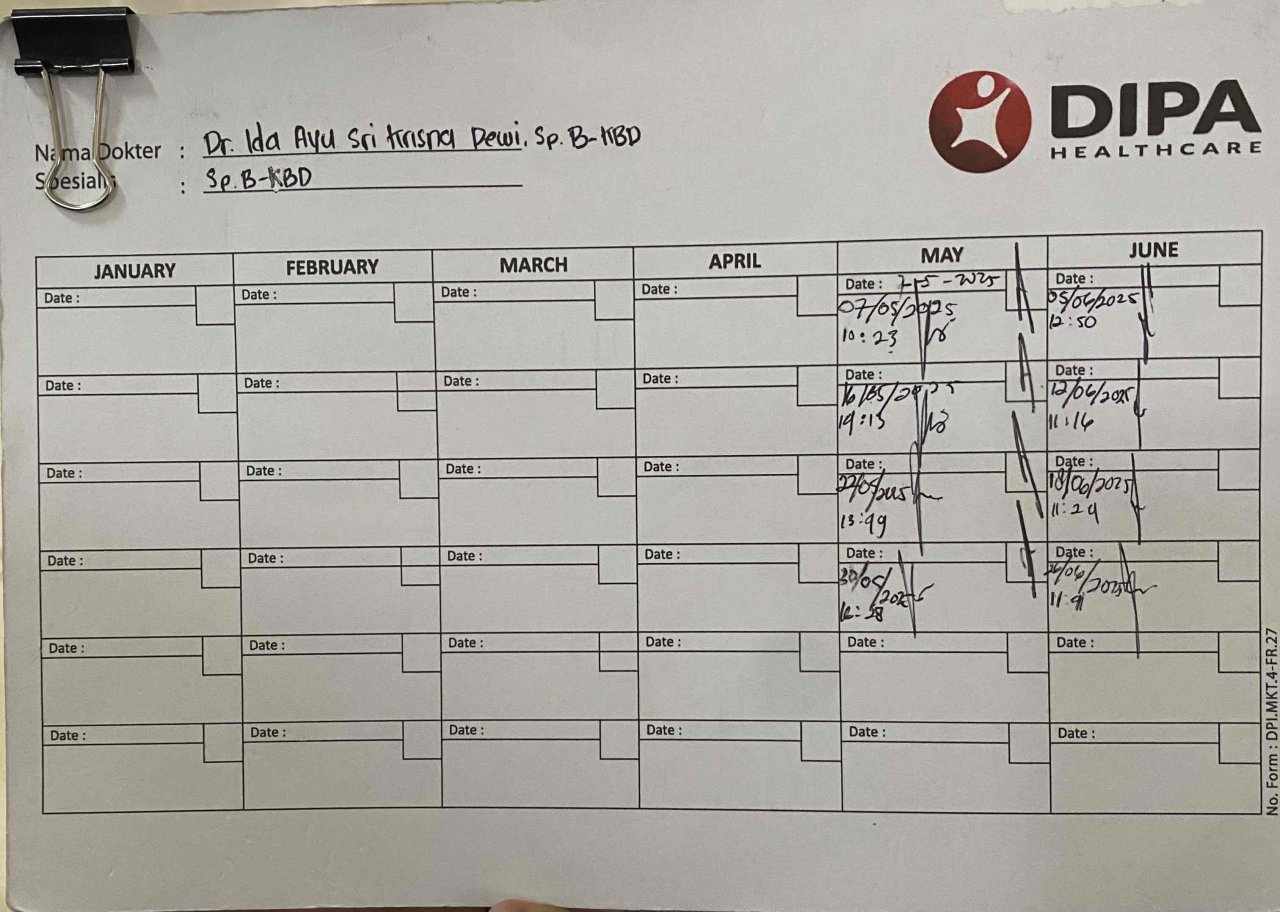 DIPA
HEALTHCARE
Nama Dokter : Dr. Ida Ayu Sri Krisna Dewi. Sp. B-KBD
Spesialis : Sp. B-KBD
JANUARY FEBRUARY MARCH APRIL MAY JUNE
Date : Date : Date : Date : Date : 7-5-2025 Date :
07/05/2025 05/06/2025
10:23 12:50
Date : Date : Date : Date : Date : Date :
16/05/2025 12/06/2025
19:13 11:16
Date : Date : Date : Date : Date : Date :
22/05/2025 18/06/2025
13:49 11:24
Date : Date : Date : Date : Date : Date :
30/05/2025 26/06/2025
Date : Date : Date : Date : Date : Date :
Date : Date : Date : Date : Date : Date :
No. Form : DPI.MKT.4-FR.27